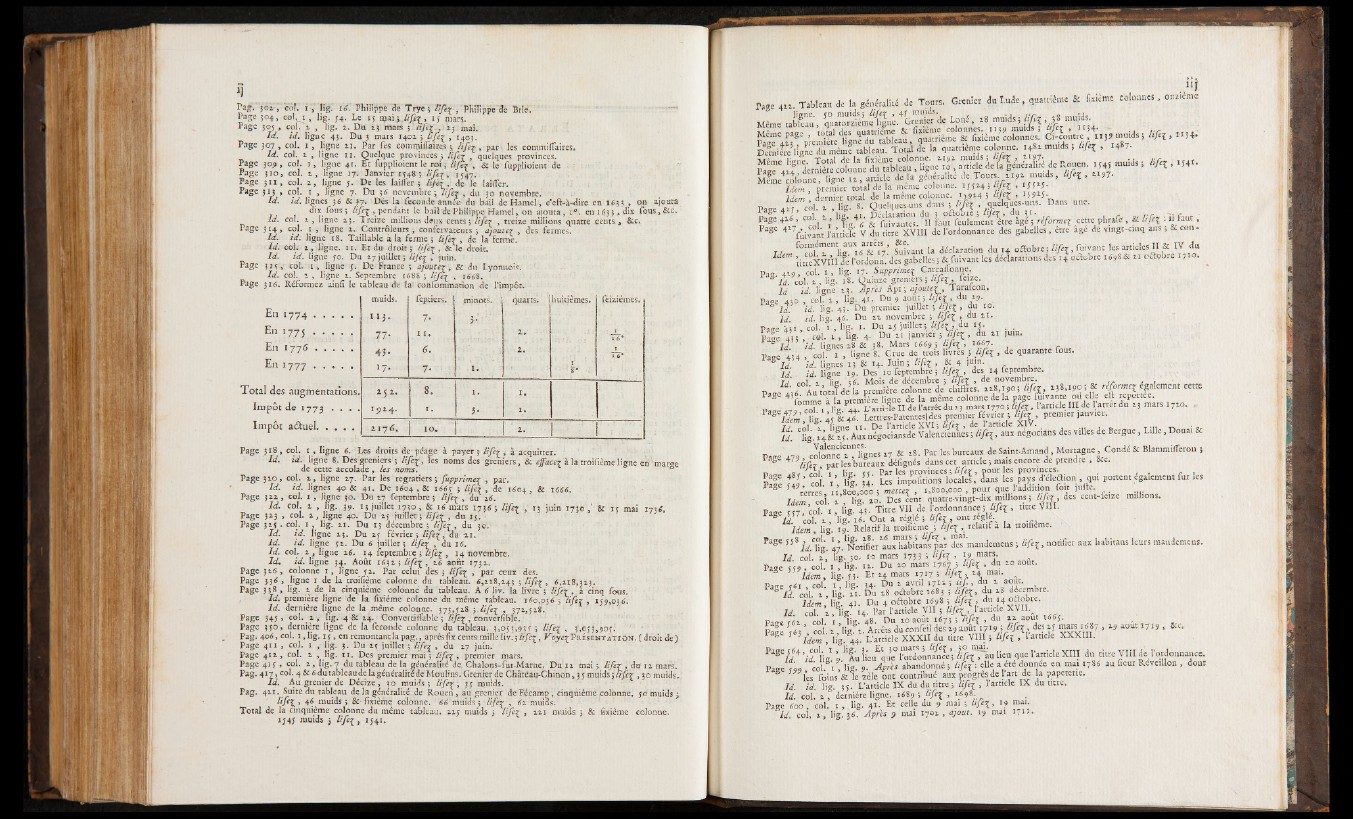 ij
Pag. 302, col. 1, lig. 16. Philippe de Trye; lisez, Philippe de Brie.
Page 304, col. 1, lig. 54. Le 15 mai; lisez, 15 mars.
Page 305, col. 2, lig. 2. Du 23 mars; lisez, 23 mai.
Id. Id. ligne 43. Du 3 mars 1402; lisez, 1403.
Page 307, col. 1, ligne 21. Par ses commissaires; lisez, par les commissaires.
Id. col. 2, ligne 11. Quelque provinces; lisez, quelques provinces.
Page 309, col. 1, ligne 41. Et supplioient le roi; lisez, & le supplioient de
Page 310, col. 2, ligne 17. Janvier 1548; lisez, 1547.
Page 311, col. 2, ligne 5. De les laisser; lisez, de le laisser.
Page 313, col. 1, ligne 7. Du 36 novembre; lisez, du 30 novembre.
Id. id. lignes 36 & 37. Dès la seconde année du bail de Hamel, c'est-à-dire en 1633, on ajouta
dix sous; lisez, pendant le bail de Philippe Hamel, on ajoura, 1°. en 1635, dix sous, &c.
Id. col. 2, ligne 23. Treize millions deux cents; lisez, treize millions quatre cents, &c.
Page 314, col. 1, ligne 2. Contrôleurs, conservateurs; ajoutez, des fermes.
Id. id. ligne 18. Taillable à la ferme; lisez, de la ferme.
Id. col. 2, ligne. 11. Et du droit; lisez, & le droit.
Id. id. ligne 50. Du 27 juillet; lisez, juin.
Page 315, col. 1, ligne 5. De France; ajoutez, & du Lyonnois.
Id. col. 2, ligne 2. Septembre 1688; lisez, 1668.
Page 316. Réformez ainsi le tableau de la consommation de l'impôt.
muids. septiers. minots. quarts. huitièmes. seizièmes.
En 1774 . . . . . 113. 7. 3.
En 1775 . . . . . 77. 11. 2. 1/16.
En 1776 . . . . . 43. 6. 2. 1/16.
En 1777 . . . . . 17. 7. 1. 1/8.
Total des augmentations. 252. 8. 1. 1.
Impôt de 1773 . . . . 1924. 1. 3. 1.
Impôt actuel. . . . . 2176. 10. 2.
Page 318, col. 1, ligne 6. Les droits de péage à payer; lisez, à acquitter.
Id. id. ligne 8. Des greniers; lisez, les noms des greniers, & effacez à la troisième ligne en marge
de cette accolade, les noms.
Page 320, col. 2, ligne 27. Par les regratiers; supprimez, par.
Id. id. lignes 40 & 41. De 1604, & 1665; lisez, de 1604, & 1666.
Page 322, col. 1, ligne 30. Du 27 septembre; lisez, du 26.
Id. col. 2, lig. 39. 13 juillet 1730, & 16 mars 1736; lisez, 13 juin 1730, & 15 mai 1736.
Page 323, col. 2, ligne 40. Du 25 juillet; lisez, du 15.
Page 325, col. 1, lig. 21. Du 13 décembre; lisez, du 30.
Id. id. ligne 23. Du 25 février; lisez, du 21.
Id. id. ligne 52. Du 6 juillet; lisez, du 16.
Id. col. 2, ligne 26. 14 septembre; lisez, 14 novembre.
Id. id. ligne 34. Août 1632; lisez, 26 août 1732.
Page 326, colonne 1, ligne 52. Par celui des; lisez, par ceux des.
Page 336, ligne 1 de la troisième colonne du tableau. 6,218,245; lisez, 6,218,325.
Page 338, lig. 2 de la cinquième colonne du tableau. A 6 liv. la livre; lisez, à cinq sous.
Id. première ligne de la sixième colonne du même tableau. 160,036; lisez, 159,036.
Id. dernière ligne de la même colonne. 373,528; lisez, 372,528.
Page 345, col. 2, lig. 4 & 24. Convertissable; lisez, convertible.
Page 350, dernière ligne de la seconde colonne du tableau. 3,055,935; lisez, 3,053,505.
Pag. 406, col. 1, lig. 15, en remontant la pag., après six cents mille liv.; lisez, Voyez PRÉSENTATION. (droit de)
Page 411, col. 1, lig. 3. Du 25 juillet; lisez, du 27 juin.
Page 412, col. 2, lig. 11. Des premier mai; lisez, premier mars.
Page 415, col. 2, lig. 7 du tableau de la généralité de Chalons-sur-Marne. Du 12 mai; lisez, du 12 mars.
Pag. 417, col. 4 & 6 du tableau de la généralité de Moulins. Grenier de Château-Chinon, 35 muids; lisez, 30 muids.
Id. Au grenier de Décize, 10 muids; lisez, 55 muids.
Pag. 421. Suite du tableau de la généralité de Rouen, au grenier de Fécamp, cinquième colonne. 50 muids;
lisez, 46 muids; & sixième colonne. 66 muids; lisez, 62 muids.
Total de la cinquième colonne du même tableau. 225 muids; lisez, 221 muids; & sixième colonne.
1545 muids; lisez, 1541.
iij
Page 422. Tableau de la généralité de Tours. Grenier du Lude, quatrième & sixième colonnes, onzième
ligne. 50 muids; lisez, 45 muids.
Même tableau, quatorzième ligne. Grenier de Loué, 28 muids; lisez, 38 muids.
Même page, total des quatrième & sixième colonnes. 1139 muids; lisez, 1134.
Page 423, première ligne du tableau, quatrième & sixième colonnes. Ci-contre, 1139 muids; lisez, 1134.
Dernière ligne du même tableau. Total de la quatrième colonne. 1482 muids; lisez, 1487.
Même ligne. Total de la sixième colonne. 2192 muids; lisez, 2197.
Page 424, dernière colonne du tableau, ligne 10, article de la généralité de Rouen. 1545 muids; lisez, 1541.
Même colonne, ligne 12, article de la généralité de Tours. 2192 muids, lisez, 2197.
Idem, premier total de la même colonne. 15524; lisez, 15525.
Idem, dernier total de la même colonne. 15924; lisez, 15925.
Page 425, col. 2, lig. 8. Quelques-uns dans; lisez, quelques-uns. Dans une.
Page 426, col. 2, lig. 41. Déclaration du 3 octobre; lisez, du 31.
Page 427, col. 1, lig. 6 & suivantes. Il faut seulement être âgé; réformez cette phrase, & lisez: il faut,
suivant l'article V du titre XVIII de l'ordonnance des gabelles, être âgé de vingt-cinq ans; & con-
formément aux arrêts, &c.
Idem, col. 2, lig. 16 & 17. Suivant la déclaration du 14 octobre; lisez, suivant les articles II & IV du
titre XVIII de l'ordonn. des gabelles; & suivant les déclarations des 14 octobre 1698 & 21 octobre 1710.
Pag. 429, col. 1, lig. 17. Supprimez Carcassonne.
Id. col. 2, lig. 18. Quinze greniers; lisez, seize.
Id id. ligne 23. Après Apt; ajoutez, Tarascon.
Page 430, col. 2, lig. 41. Du 9 août; lisez, du 29.
Id. id. lig. 43. Du premier juillet; lisez, du 10.
Id. id. lig. 46. Du 22 novembre; lisez, du 21.
Page 431, col. 1, lig. 1. Du 25 juillet; lisez, du 15.
Page 433, col. 1, lig. 4. Du 21 janvier; lisez, du 21 juin.
Id. id. lignes 28 & 38. Mars 1669; lisez, 1667.
Page 434, col. 1, ligne 8. Crue de trois livres; lisez, de quarante sous.
Id. id. lignes 13 & 14. Juin; lisez, & 4 juin.
Id. id. ligne 19. Des 10 septembre; lisez, des 14 septembre.
Id. col. 2, lig. 36. Mois de décembre; lisez, de novembre.
Page 436. Au total de la première colonne de chiffres. 228,190; lisez, 238,190; & réformez également cette
somme à la première ligne de la même colonne de la page suivante où elle est reportée.
Page 479, col. 1, lig. 44. L'article II de l'arrêt du 23 mars 1770; lisez, l'article III de l'arrêt du 23 mars 1720.
Idem, lig. 45 & 46. Lettres-Patentes des premier février; lisez, premier janvier.
Id. col. 2, ligne 11. De l'article XVI; lisez, de l'article XIV.
Id. lig. 24 & 25. Aux négocians de Valenciennes; lisez, aux négocians des villes de Bergue, Lille, Douai &
Valenciennes.
Page 479, colonne 2, lignes 27 & 28. Par les bureaux de Saint-Amand, Mortagne, Condé & Blammisseron;
lisez, par les bureaux désignés dans cet article; mais encore de prendre, &c.
Page 485, col. 1, lig. 55. Par les provinces; lisez, pour les provinces.
Page 549, col. 1, lig. 34. Les impositions locales, dans les pays d'élection, qui portent également sur les
terres, 11,800,000; mettez, 1,800,000, pour que l'addition soit juste.
Idem, col. 2, lig. 20. Des cent quatre-vingt-dix millions; lisez, des cent-seize millions.
Page 557, col. 1, lig. 43. Titre VII de l'ordonnance; lisez, titre VIII.
Id. col. 2, lig. 16. Ont a réglé; lisez, ont réglé.
Idem, lig. 19. Relatif la troisième; lisez, relatif à la troisième.
Page 558, col. 1, lig. 28. 26 mars; lisez, mai.
Id. lig. 47. Notifier aux habitans par des mandemens; lisez, notifier aux habitans leurs mandemens.
Id. col. 2, lig. 30. 10 mars 1733; lisez, 19 mars.
Page 559, col. 1, lig. 12. Du 20 mars 1767; lisez, du 20 août.
Idem, lig. 53. Et 24 mars 1717; lisez, 24 mai.
Page 561, col. 1, lig. 34. Du 2 avril 1712; lis., du 2 août.
Id. col. 2, lig. 21. Du 28 octobre 1683; lisez, du 28 décembre.
Idem, lig. 41. Du 4 octobre 1698; lisez, du 14 octobre.
Id. col. 2, lig. 14. Par l'article VII; lisez, l'article XVII.
Page 562, col. 1, lig. 48. Du 20 août 1673; lisez, du 22 août 1665.
Page 563, col. 2, lig. 1. Arrêts du conseil des 29 août 1719; lisez, des 25 mars 1687, 29 août 1719, &c.
Idem, lig. 44. L'article XXXII du titre VIII; lisez, l'article XXXIII.
Page 564, col. 1, lig. 3. Et 30 mars; lisez, 30 mai.
Id. id. lig. 9. Au lieu que l'ordonnance; lisez, au lieu que l'article XIII du titre VIII de l'ordonnance.
Page 599, col. 1, lig. 9. Après abandonné; lisez: elle a été donnée en mai 1786 au sieur Réveillon, dont
les soins & le zèle ont contribué aux progrès de l'art de la papeterie.
Id. id. lig. 35. L'article IX du du titre; lisez, l'article IX du titre.
Id. col. 2, dernière ligne. 1689; lisez, 1698.
Page 600, col. 1, lig. 41. Et celle du 9 mai; lisez, 19 mai.
Id. col. 2, lig. 36. Après 9 mai 1702, ajout. 19 mai 1711.